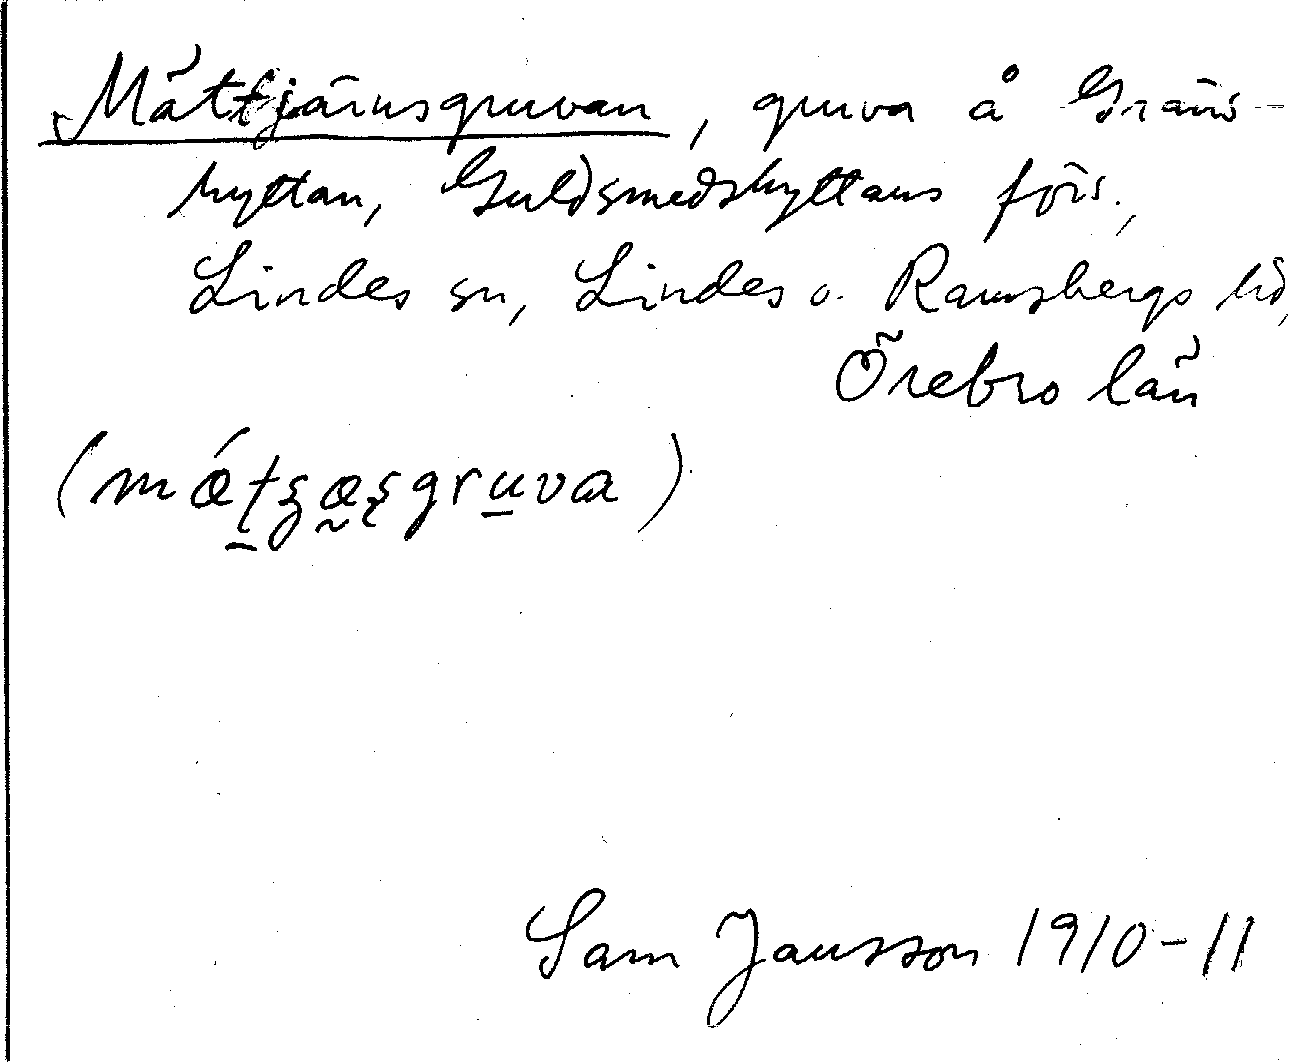 Mättjärnsgruvan, gruva å Gräns-
hyttan, Guldsmedshyttans förs.,
Lindes sn, Lindes o. Ramsbergs hd,
Örebro län
gruva)
Sam Jansson 1910-11